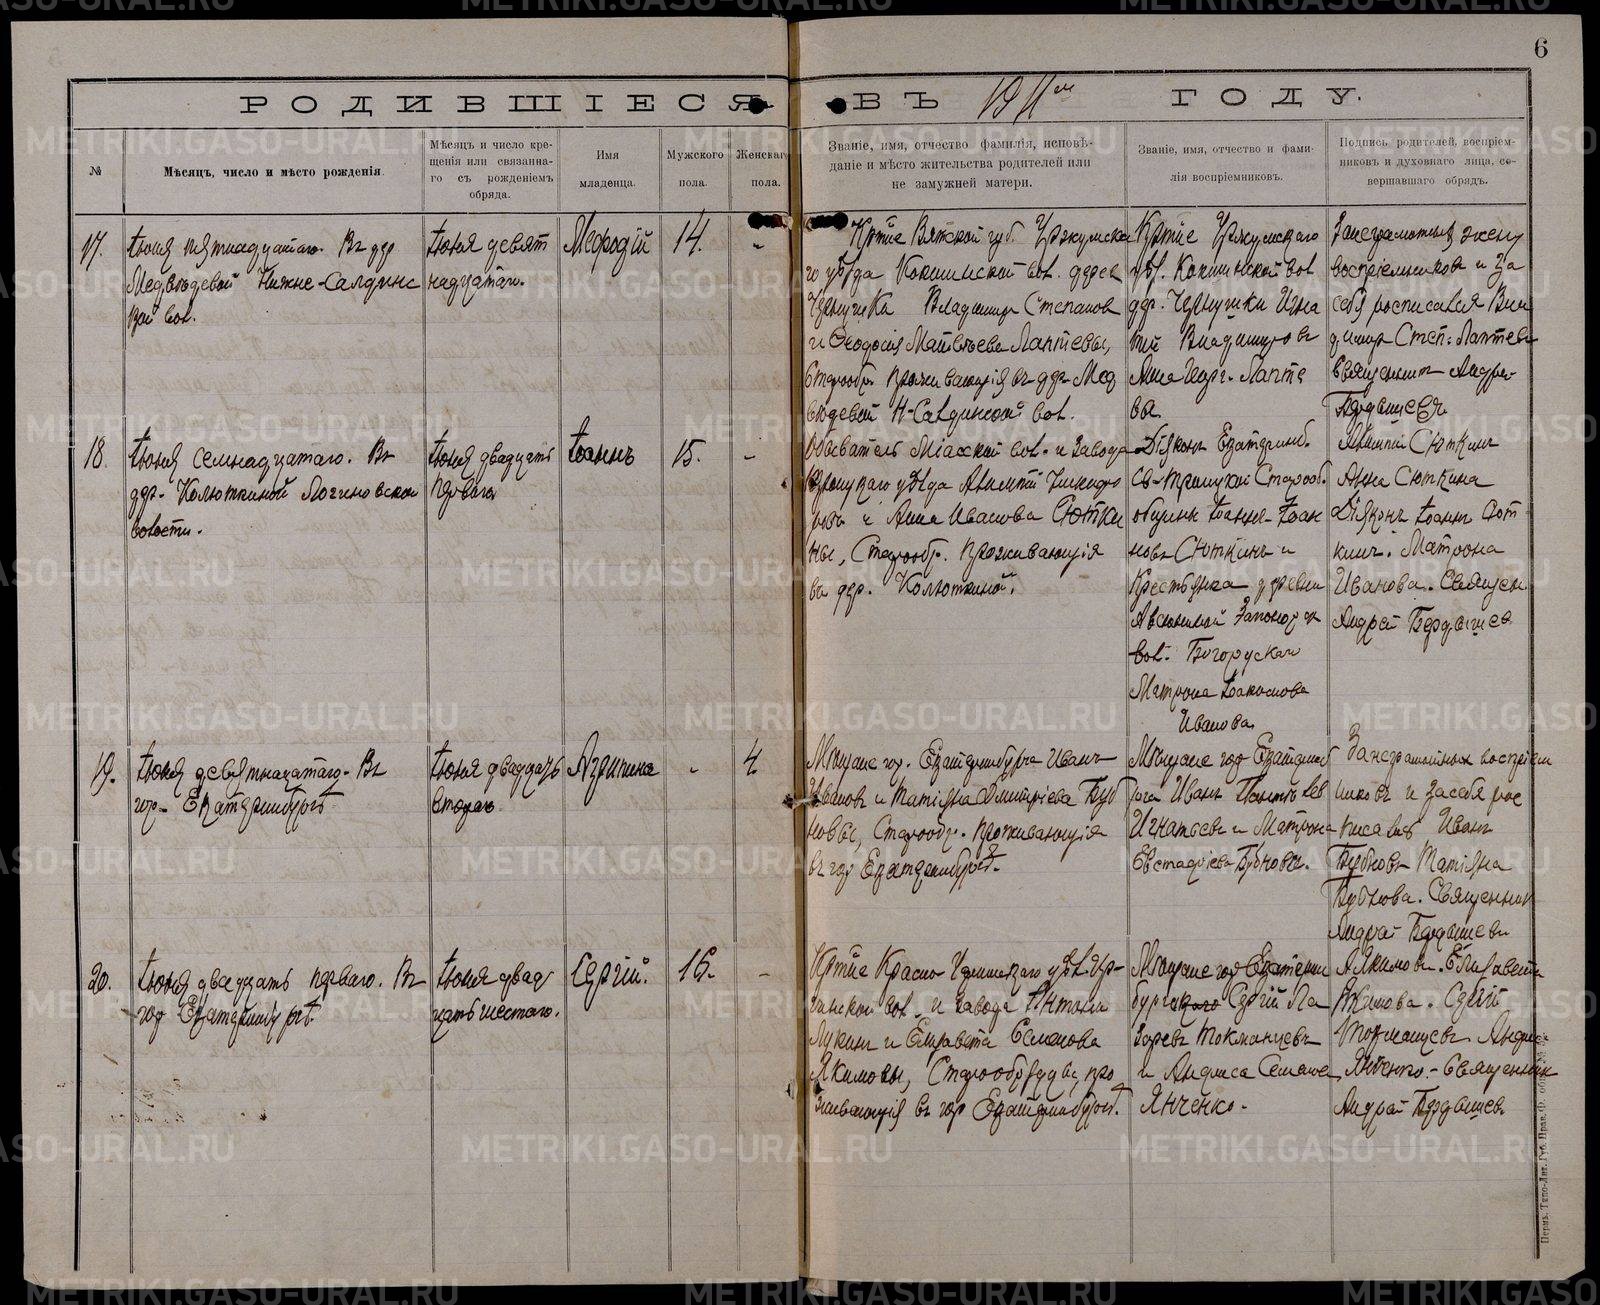 6
РОДИВШІЕСЯ ВЪ 1911 ГОДУ.
№
Мѣсяцъ, число и мѣсто рожденія.
Мѣсяцъ и число кре-
щенія или связанна-
го съ рожденіемъ
обряда.
Имя
младенца.
Мужского
пола.
Женскаго
пола.
Званіе, имя, отчество фамилія, исповѣ-
даніе и мѣсто жительства родителей или
не замужней матери.
Званіе, имя, отчество и фами-
лія воспріемниковъ.
Подпись родителей, воспріем-
никовъ и духовнаго лица, со-
вершавшаго обрядъ.
17.
Іюня пятнадцатаго. Въ дер
Медвѣдевой Нижне-Салдинс
кой вол.
Іюня девят
надцатаго.
Меѳодій
14.
-
Кр-не Вятской губ. Уржумска
го уѣзда Кокшинской вол. дерев
Чернушки Владимір Степанов
и Ѳеодосія Матвѣева Лаптевы,
Старообр. проживающія въ дер. Мед
вѣдевой Н-Салдинской вол.
Кр-не Уржумскаго
уѣз. Кокшинской вол
дер. Чернушки Игна
тій Владиміров
Анна Георг. Лапте
ва.
За неграмотных
воспріемников и за
себя росписался Вла
димир Степ. Лаптев
Священник Андре
Бердышевъ
18.
Іюня семнадцатаго. Въ
дер. Колюткиной Логиновской
волости.
Іюня двадцать
перваго
Іоаннъ
15.
-
Обыватель Міасской вол. и завода
Троицкаго уѣзда
и Анна Иванова Сютки
ны, Старообр. проживающія
въ дер. Колюткиной.
Діяконъ Екатеринб.
Св-Троицкой Старооб.
общины Іоаннъ Іоан
новъ Сюткинъ и
Крестьянка деревни
вол.
Матрона
Иванова
Сюткинъ
Анна Сюткина
Діяконъ Іоаннъ Сют
кинъ. Матрона
Иванова. Священ.
Андрей Бердышев
19.
Іюня девятнадцатаго. Въ
гор. Екатеринбургѣ
Іюня двадцать
втораго.
Агрипина
-
4.
Мѣщане гор. Екатеринбурга Иванъ
Иванов и Татіяна Дмитріева Буб
новы, Старообр. проживающія
въ гор Екатеринбургѣ.
Мѣщане гор Екатеринб
урга Иванъ
Игнатьевъ и Матрона
Евстафіева Бубновы.
За неграмотных воспріем
никовъ и за себя рос
писался Иванъ
Бубновъ Татіяна
Бубнова. Священник
Андрей Бердышевъ
20.
Іюня двадцать перваго. Въ
гор Екатеринбургѣ.
Іюня двад
цать шестаго.
Сергій.
16.
-
Кр-не Красно-Уфимскаго уѣз. Ар-
тинской вол. и завода
Лукинъ и Елизавета Семенова
Якимовы, Старообрядцы, про
живающія въ гор Екатеринбургѣ.
Мѣщане гор Екатерин
бургскаго Сергій Ла
заревъ Токманцевъ
и Анфиса
Янченко.
Якимовъ. Елизавета
Якимова. Сергій
Токманцевъ. Анфис
Янченко. - Священник
Андрей Бердышевъ